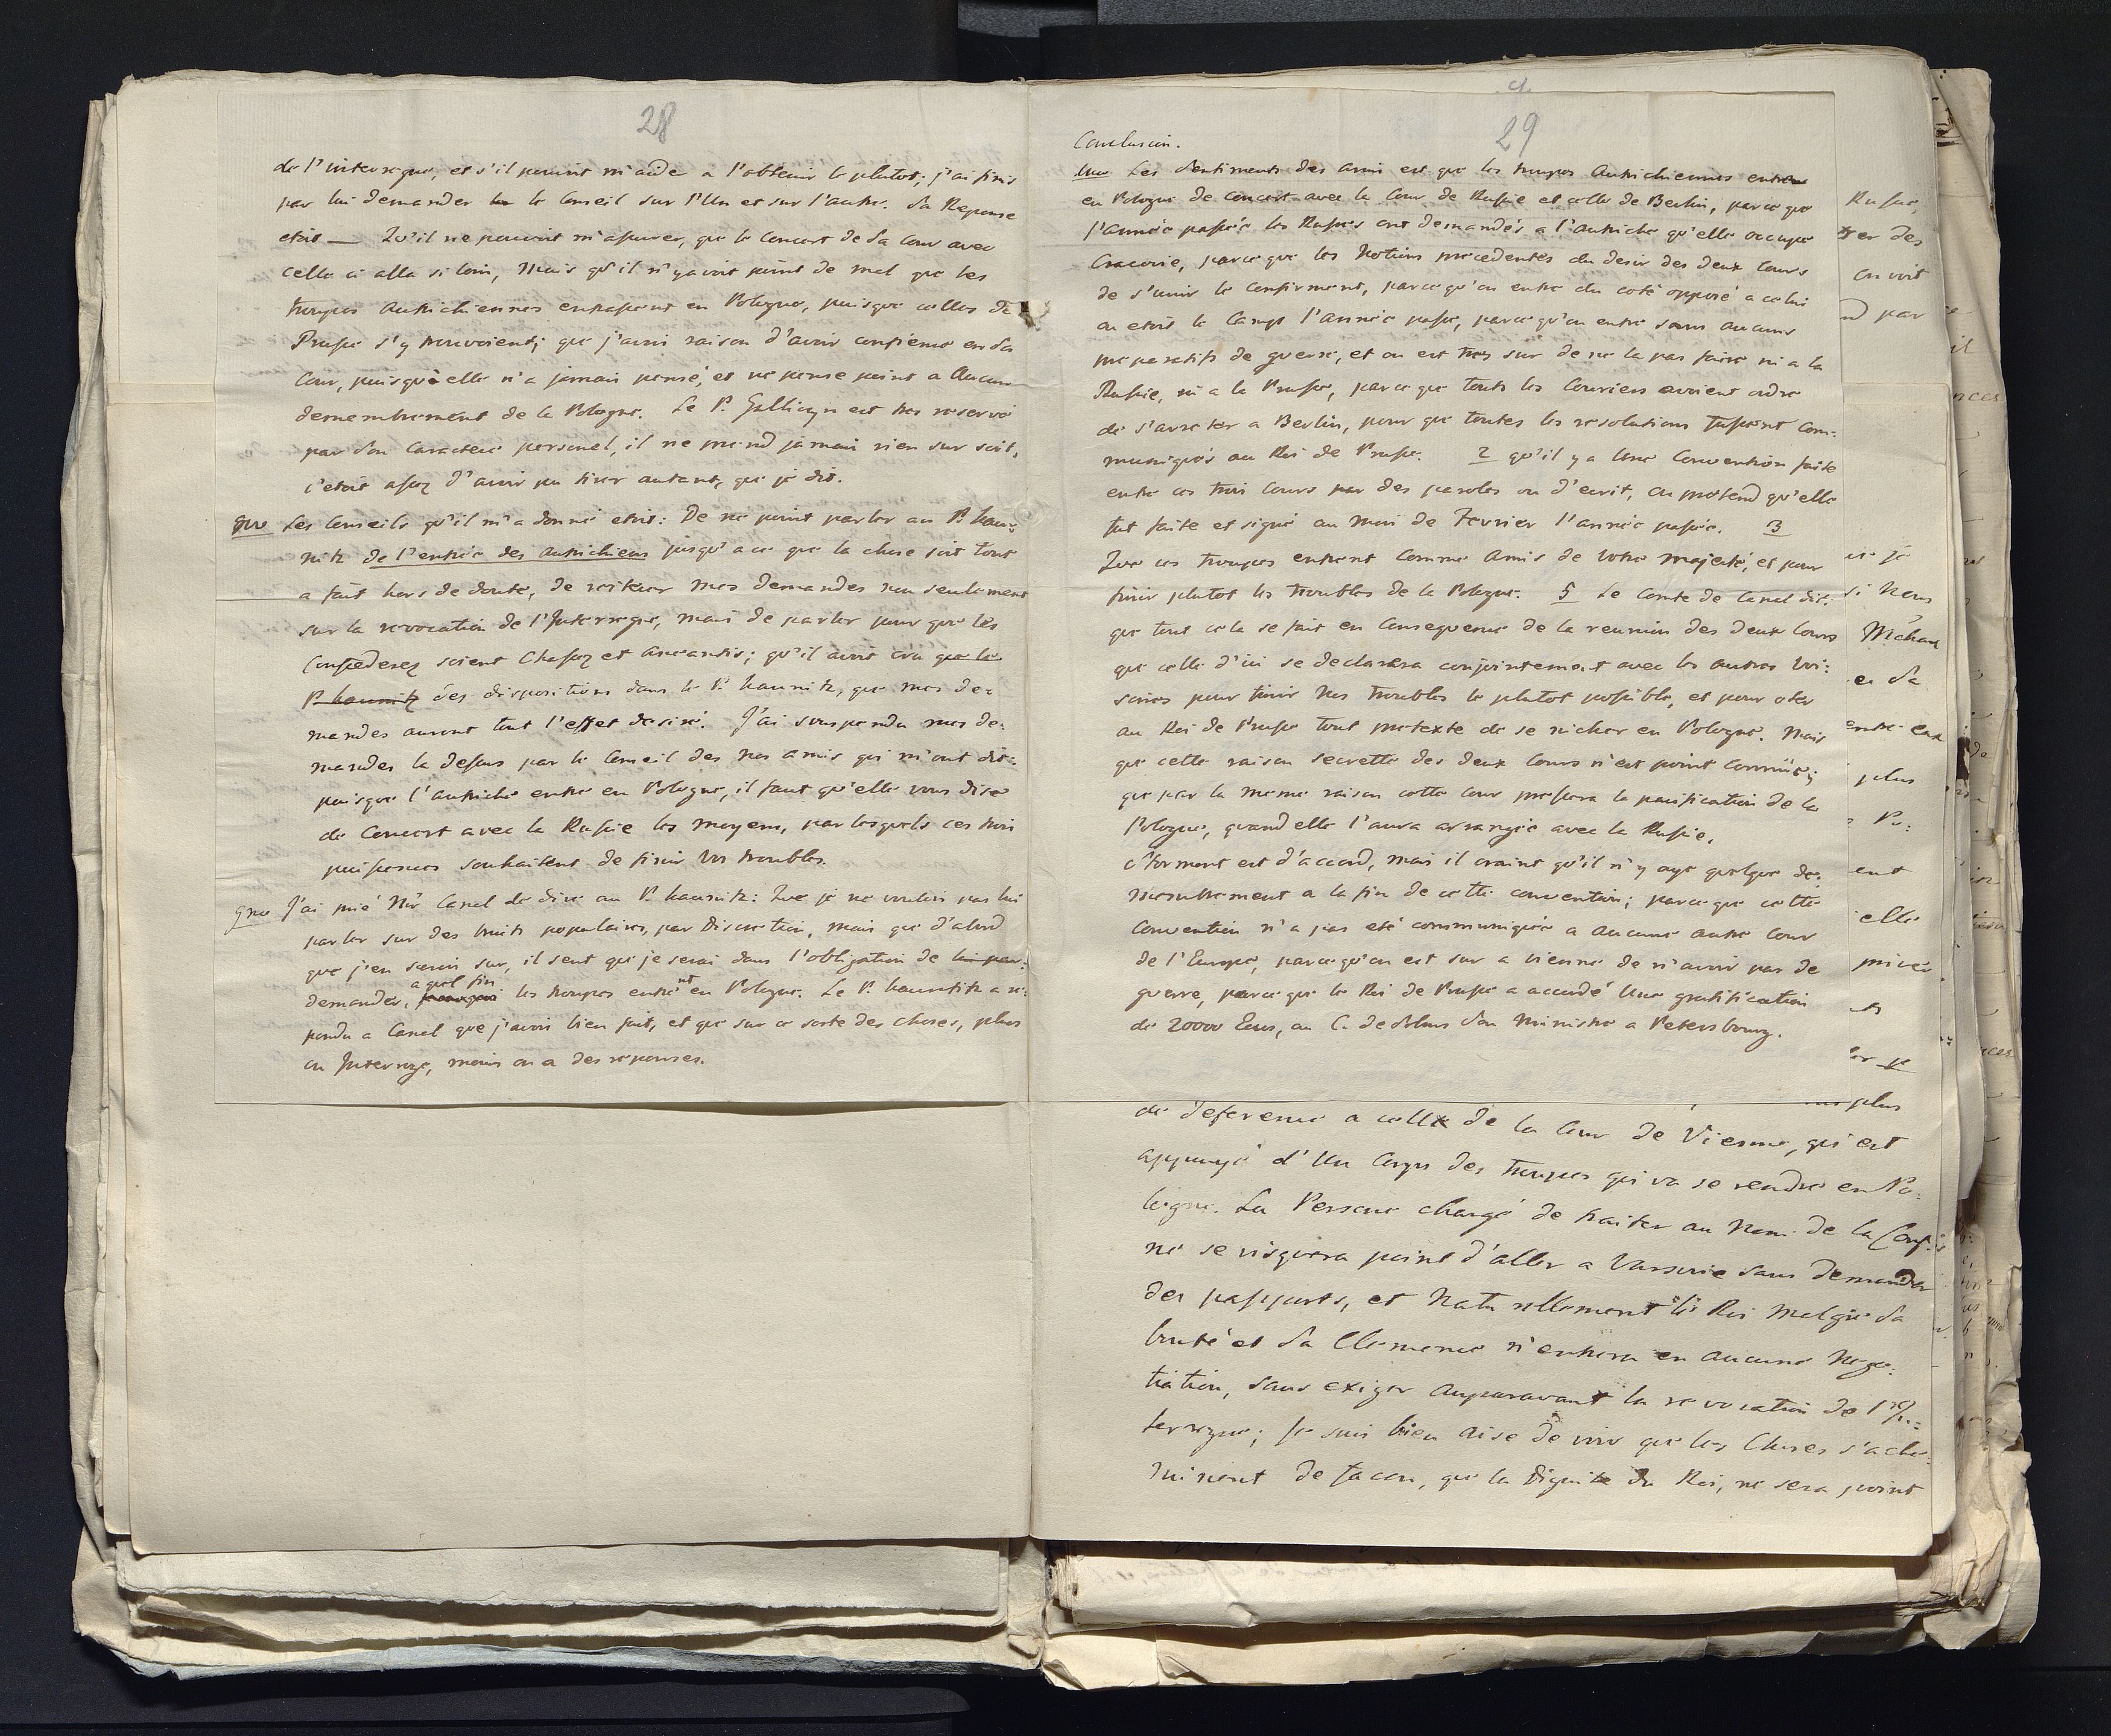 28
de l'interregne, et s'il pouvoit m'aider a l'obtenir le plutot; j'ai finis
par lui demander le Conseil sur l'Un et sur l'autre. Sa Reponse
etoit — Qu'il ne pouvoit m'assurer, que le Concert de Sa Cour avec
celle ci alla si loin, Mais qu'il n'y avoit point de mal que les
troupes Autrichiennes entrassent en Pologne, puisque celles de
Prusse s'y trouvoient; que j'avois raison d'avoir confience en Sa
Cour, puisqu'elle n'a jamais pensé, et ne pense point a Aucun
demembrement de la Pologne. Le P. Galliczyn est tres reservé
par Son Caractere personel, il ne prend jamais rien sur soit,
c'etoit assez d'avoir pu tirer autant, que je dit.
Les Conseils qu'il m'a donné etoit: De ne point parler au P. Kau=
nitz de l'entrée des Autrichiens jusqu'a ce que la chose soit tout
a fait hors de doute, de reiterer mes demandes non seulement
sur la revocation de l'Interregne, mais de parler pour que les
Confederez soient Chassez et aneantis; qu'il avoit cru que le
P. Kaunitz des dispositions dans le P. Kaunitz, que mes de=
mandes auront tout l'effet desiré. J'ai suspendu mes de=
mandes la dessus par le Conseil des nos amis qui m'ont dit:
puisque l'Autriche entre en Pologne, il faut qu'elle vous dise
de Concert avec la Russie les moyens, par lesquels ces trois
puissances souhaitent de finir vos troubles.
J'ai prié Mr Canal de dire au P. Kaunitz: Que je ne voulois pas lui
parler sur des bruits populaires, par Discretion, mais que d'abord
que j'en serois sur, il sent que je serai dans l'obligation de lui par:
demander, a quel fin pourquoi les troupes entrent en Pologne. Le P. Kaunitz a re=
pondu a Canal que j'avois bien fait, et que sur ce sorte des choses, plus
on Interroge, moins on a des reponses.
29
Conclusion.
Les Sentiments des amis est que les troupes Autrichiennes entrent
en Pologne de concert avec la Cour de Russie et celle de Berlin, parce que
l'année passée les Russes ont demandés a l'Autriche qu'elle occupe
Cracovie, parce que les Notions precedentes du desir des deux Cours
de s'unir le confirment, parce qu'on entre du coté opposé a celui
ou etoit le Camp l'année passé, parce qu'on entre sans aucuns
preparatifs de guerre, et on est tres sur de ne la pas faire ni a la
Russie, ni a la Prusse, parce que touts les Couriers avoient ordre
de s'arreter a Berlin, pour que toutes les resolutions fussent Com=
muniqués au Roi de Prusse. 2 qu'il y a Une Convention faite
entre ces trois Cours par des paroles ou d'ecrit, on pretend qu'elle
fut faite et signé au Mois de Fevrier l'année passée. 3
Que ces troupes entrent Comme Amis de Votre Majesté, et pour
finir plutot les troubles de la Pologne. 5 Le Comte de Canal dit:
que tout cela se fait en Consequence de la reunion des deux Cours
que celle d'ici se declarera conjointement avec les autres Voi=
sines pour finir Nos troubles le plutot possible, et pour oter
au Roi de Prusse tout pretexte de se nicher en Pologne. Mais
que cette raison secrette des deux Cours n'est point Connüe;
que par la meme raison cette Cour pressera la pacification de la
Pologne, quand elle l'aura arrangée avec la Russie.
est d'accord, mais il craint qu'il n'y aye quelque de=
membrement a la fin de cette convention; parce que cette
Convention n'a pas eté communiquée a aucune autre Cour
de l'Europe, parce qu'on est sur a Vienne de n'avoir pas de
guerre, parce que le Roi de Prusse a accordé Une gratification
de 20000 Ecus, au C. de Solms Son Ministre a Petersbourg.
de deference a celle de la Cour de Vienne, qui est
appuyé d'Un Corps des Troupes qui va se rendre en Po=
logne. La Persone chargé de traiter au Nom de la Conf:
ne se risquera point d'aller a Varsovie sans demander
des passports, et Naturellement le Roi Malgré Sa
bonté et Sa Clemence n'entrera en aucune Nego=
tiation, sans exiger auparavant la revocation de l'In=
terregne; Je suis bien aise de voir que les Choses s'ache=
minent de facon, que la Dignité du Roi, ne sera point
Russie,
on voit
par
si Nous
plus
elle
plus